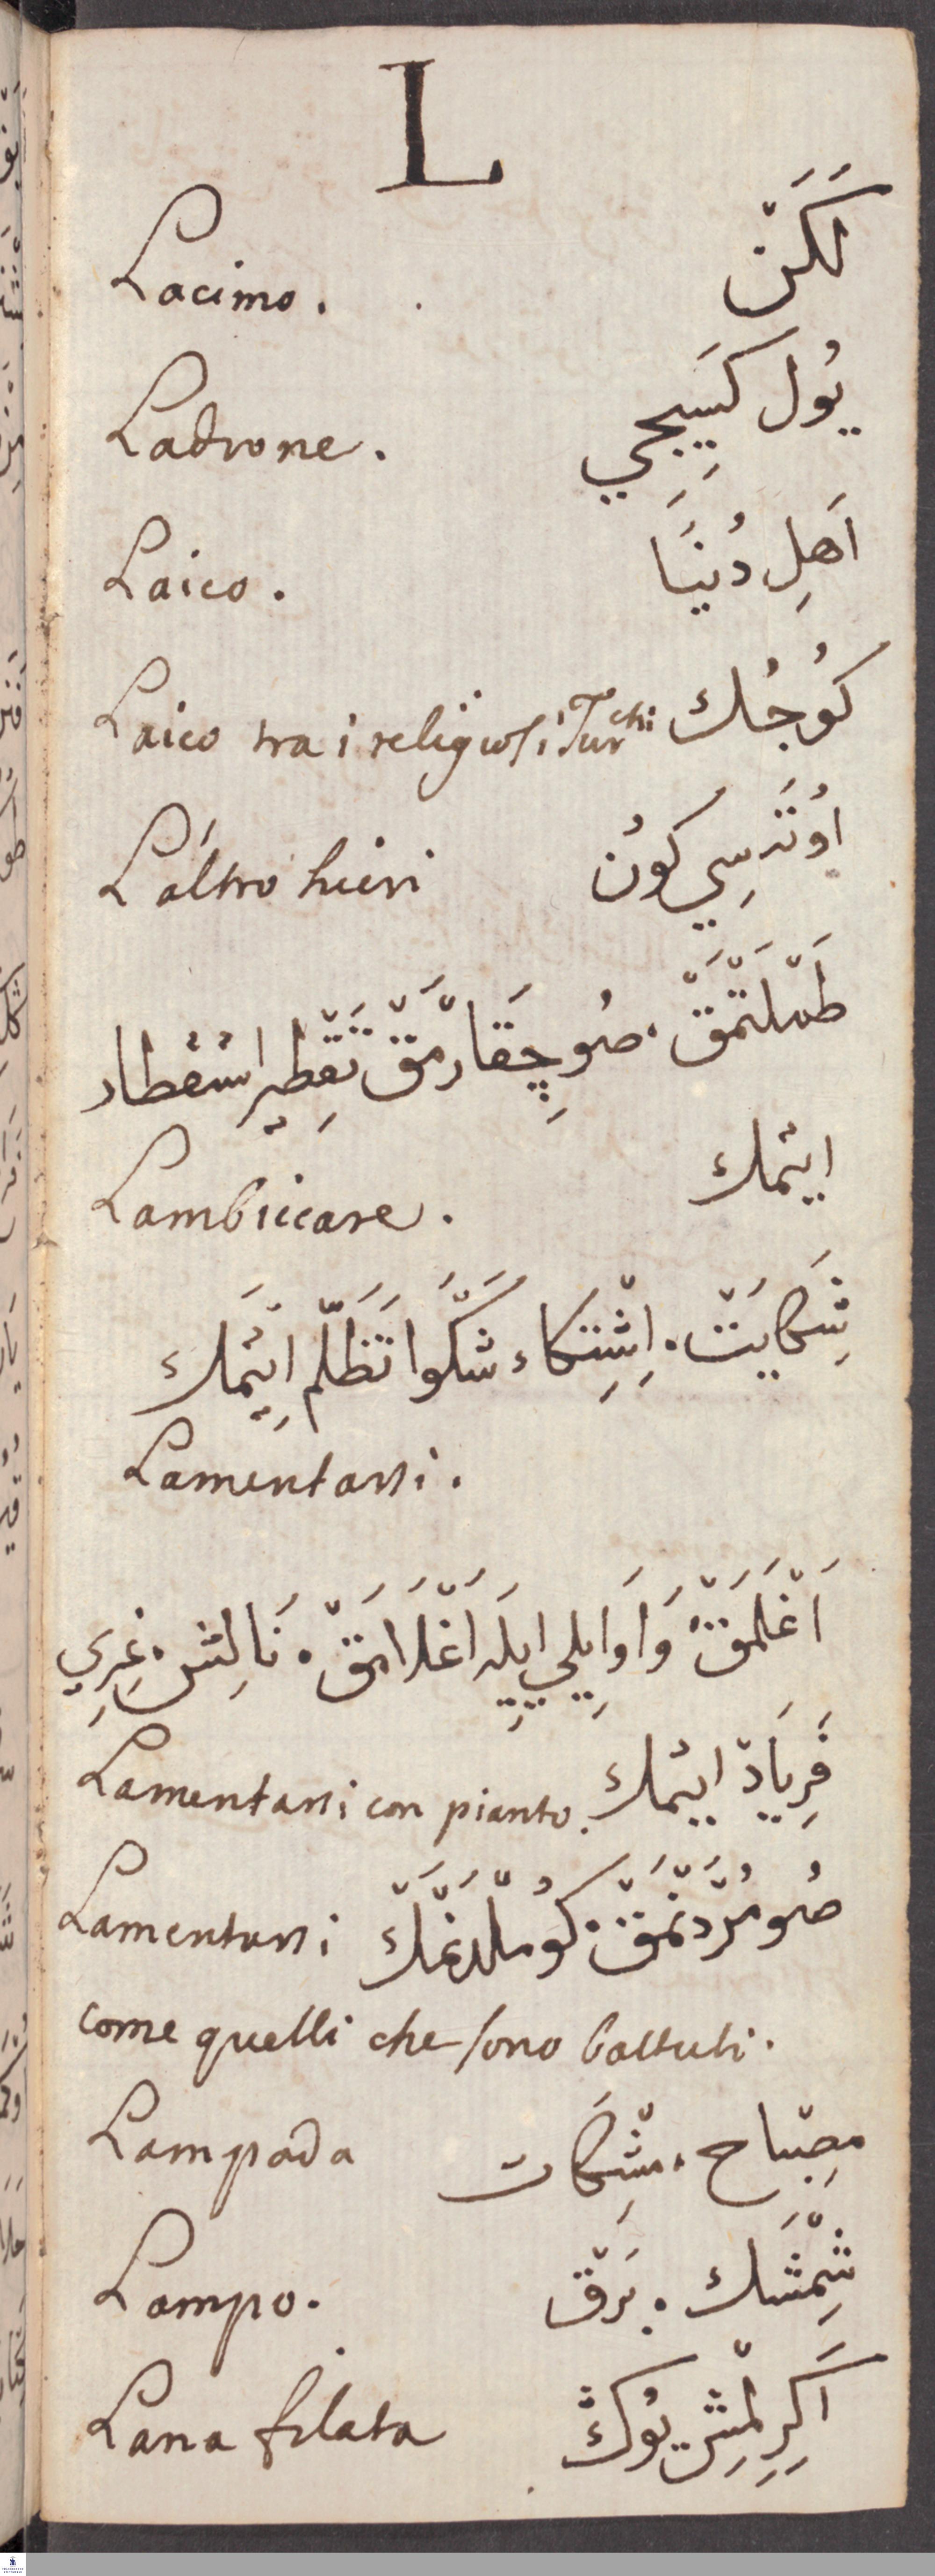 L
Lacimo. لَكَنْ
Ladrone. يُول كَسِيجِي
Laico. اَهلِ دُنيَا
Laico tra i religiosi Turchi كُوجُك
L'altro hieri اوُتَه سِي كوُن
طَمْلَتْمَقْ، صُو چِقَارْمَقْ تَقْطِير اسْتقْطار
Lambiccare. ايتْمك
شِكَايَتْ. اِشْتِكاء شَكْوَا تَظَلّم ايتْمَك
Lamentarsi.
اَغْلَمَقْ وَاوَايلِي ايلِه اَغْلَامَقْ. نَالِش. غِرِي
Lamentarsi con pianto. فِرِيَادْ ايتْمك
Lamentarsi صُومُرْدَنْمَقْ. كُومُلْدَنْمَكْ
come quelli che sono battuti.
Lampada مِصْباح، مِشْكَات
Lampo. شِمْشَك. بَرَقْ
Lana filata اَكِرِلْمِش يُوكْ